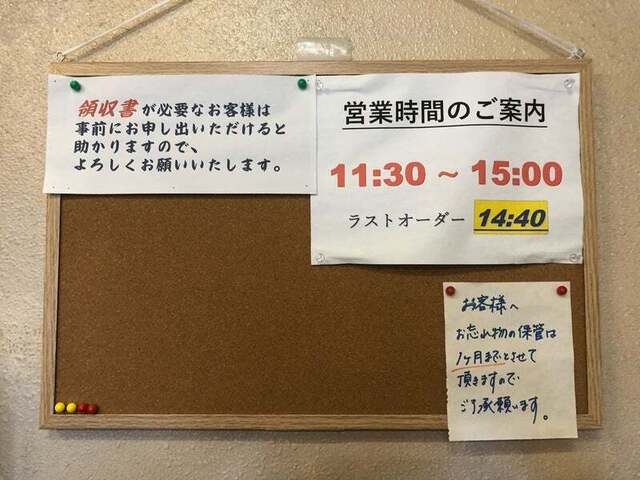 領収書が必要なお客様は
事前にお申し出いただけると
助かりますので、
よろしくお願いいたします。
営業時間のご案内
11:30 ~ 15:00
ラストオーダー 14:40
お客様へ
お忘れ物の保管は
1ヶ月までとさせて
頂きますので
ご了承願います。